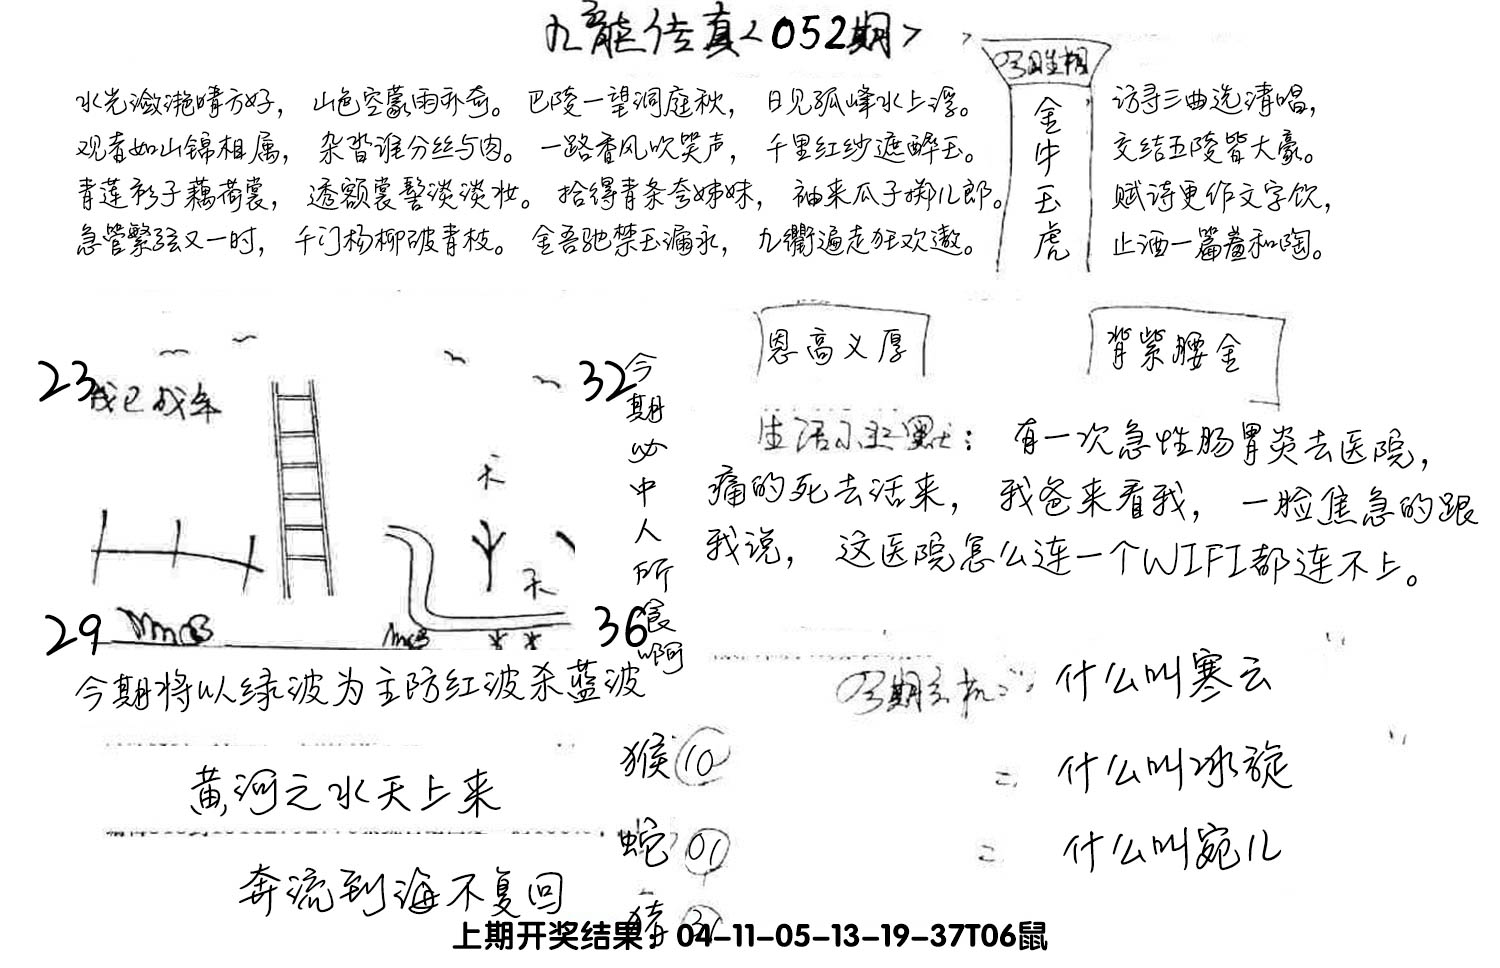 九龍传真<052期>
今日生相
金牛玉虎
水光潋滟晴方好，山色空蒙雨亦奇。巴陵一望洞庭秋，日见孤峰水上浮。
观者如山锦相属，杂沓谁分丝与肉。一路香风吹笑声，千里红纱遮醉玉。
青莲衫子藕荷裳，透额裳髻淡淡妆。拾得青条夸姊妹，袖来瓜子掷儿郎。
急管繁弦又一时，千门杨柳破青枝。金吾弛禁玉漏永，九衢遍走狂欢遨。
访寻三曲选清唱，
交结五陵皆大豪。
赋诗更作文字饮，
止酒一篇羞和陶。
23
我已成年
32
天
天
29
36
今期必中人所食啊
今期将以绿波为主防红波杀蓝波
恩高义厚
背紫腰金
生活小幽默：有一次急性肠胃炎去医院，
痛的死去活来，我爸来看我，一脸焦急的跟
我说，这医院怎么连一个WIFI都连不上。
今期玄机：
什么叫寒云
二 什么叫冰旋
三 什么叫宛儿
黄河之水天上来
奔流到海不复回
猴10
蛇01
猪
上期开奖结果：04-11-05-13-19-37T06鼠